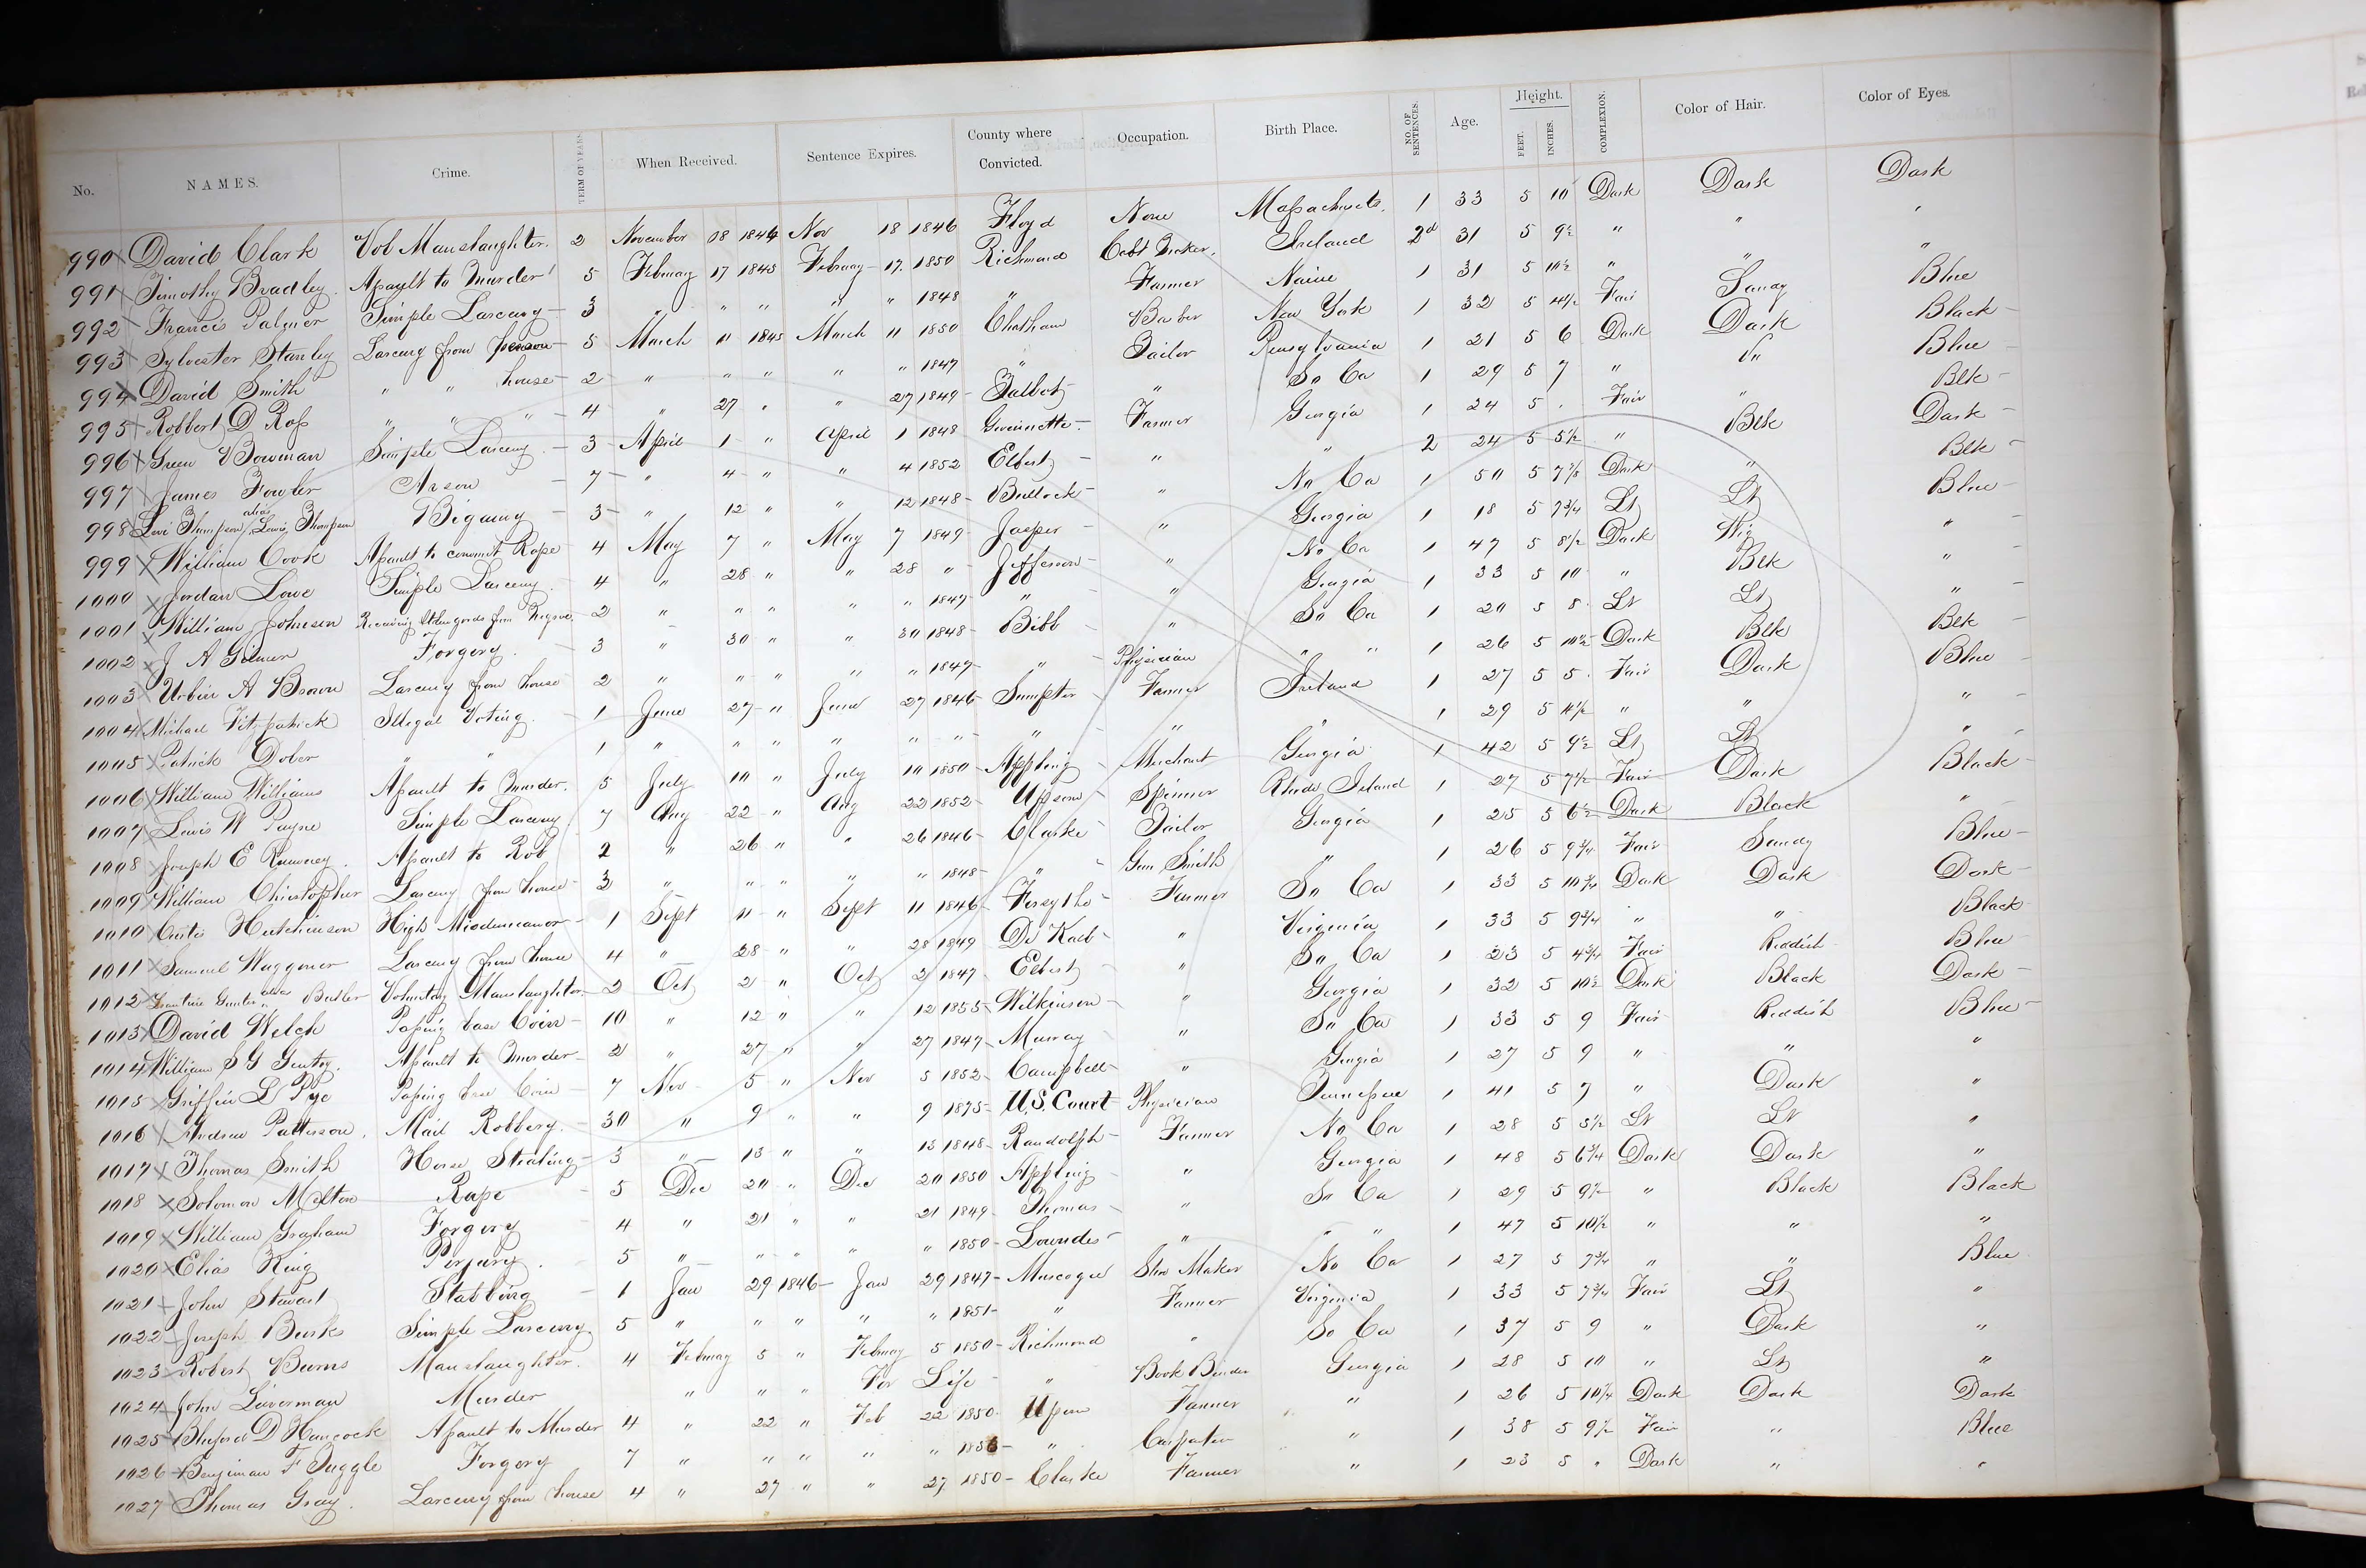 No. NAMES. Crime. TERM OF YEARS. When Received. Sentence Expires. County where Convicted. Occupation. Birth Place. NO. OF SENTENCES. Age. Height. FEET. INCHES. COMPLEXION. Color of Hair. Color of Eyes.
990 David Clark Vol Manslaughter. 2 November 18 1844 Nov 18 1846 Floyd None Massachusets. 1 33 5 10 Dark Dark Dark
991 Timothy Bradley. Assault to Murder 5 February 17 1845 February 17. 1850 Richmond Cabt Maker. Ireland 2d 31 5 9½ " " "
992 Francis Palmer Simple Larceny 3 " " " " " 1848 " Farmer Maine 1 31 5 10½ " " "
993 Sylvester Stanley Larceny from person 5 March 11 1845 March 11 1850 Chatham Barber New York 1 32 5 4½ Fair Sandy Blue
994 David Smith " " house 2 " " " " " 1847 " Tailor Pensylvania 1 21 5 6 Dark Dark Black
995 Robbert D Ross " " " 4 " 27 " " 27 1849 Talbot " So Ca 1 29 5 7 " " Blue
996 Green Bowman Simple Larceny 3 April 1 " April 1 1848 Gwinnette Farmer Georgia 1 24 5 . Fair " Blk
997 James Fowler Arson 7 " 4 " " 4 1852 Elbert " " 2 24 5 5½ " Blk Dark
998 Levi Thompson alias Lewis Thompson Bigamy 3 " 12 " " 12 1848 Bullock " No Ca 1 50 5 7⅞ Dark " Blk
999 William Cook Assault to commit Rape 4 May 7 " May 7 1849 Jasper " Georgia 1 18 5 7¾ Lt Lt Blue
1000 Jordan Lowe Simple Larceny 4 " 28 " " 28 " Jefferson " No Ca 1 47 5 8½ Dark Wig "
1001 William Johnson Receiving Stolen goods from Negroe. 2 " " " " " 1847 " " Georgia 1 33 5 10 " Blk "
1002 J A Gilmer Forgery. 3 " 30 " " 30 1848 Bibb " So Ca 1 20 5 8 Lt Lt "
1003 Urbin A Brown Larceny from house 2 " " " " " 1847 " Physician " " 1 26 5 10½ Dark Blk Blk
1004 Michael Fitzpatrick Illegal Voting. 1 June 27 " June 27 1846 Sumpter Farmer Ireland 1 27 5 5 Fair Dark Blue
1005 Patrick Dolor " " 1 " " " " " " " " " 1 29 5 11½ " " "
1006 William Williams Assault to Murder. 5 July 10 " July 10 1850 Appling Merchant Georgia 1 42 5 9½ Lt Lt "
1007 Lewis W Payne Simple Larceny 7 Aug 22 " Aug 22 1852 Upson Spinner Rhode Island 1 27 5 7½ Fair Dark Black
1008 Joseph E Rumney. Assault to Rob 2 " 26 " " 26 1846 Clarke Tailor Georgia 1 25 5 6½ Dark Black "
1009 William Christopher Larceny from house 3 " " " " " 1848 " Gun Smith " 1 26 5 9¾ Fair Sandy Blue
1010 Curtis Hutchinson High Misdemeanor 1 Sept 11 " Sept 11 1846 Forsythe Farmer So Ca 1 33 5 10¾ Dark Dark Dark
1011 Samuel Waggoner Larceny from house 4 " 28 " " 28 1849 De Kalb " Virginia 1 33 5 9¾ " " Black
1012 Gunter alias Butler Voluntary Manslaughter 2 Oct 2 " Oct 2 1847 Elbert " So Ca 1 23 5 4¾ Fair Reddish Blue
1013 David Welch Passing base Coin 10 " 12 " " 12 1855 Wilkinson " Georgia 1 32 5 10½ Dark Black Dark
1014 William S G Gentry. Assault to Murder 2 " 27 " " 27 1847 Murray " So Ca 1 33 5 9 Fair Reddish Blue
1015 Griffin L Pye Passing base Coin 7 Nov 5 " Nov 5 1852 Campbell " Georgia 1 27 5 9 " " "
1016 Andrew Patterson. Mail Robbery. 30 " 9 " " 9 1875 U.S. Court Physician Tennessee 1 41 5 7 " Dark "
1017 Thomas Smith Horse Stealing 3 " 13 " " 13 1848 Randolph Farmer No Ca 1 28 5 5½ Lt Lt "
1018 Solomon Melton Rape 5 Dec 20 " Dec 20 1850 Appling " Georgia 1 48 5 6¾ Dark Dark "
1019 William Graham Forgery 4 " 21 " " 21 1849 Thomas " So Ca 1 29 5 9½ " Black Black
1020 Elias King Perjury. 5 " " " " " 1850 Lowndes " " " 1 47 5 10½ " " "
1021 John Stewart Stabbing 1 Jan 29 1846 Jan 29 1847 Muscogee Shoe Maker No Ca 1 27 5 7¾ " " Blue
1022 Joseph Burks Simple Larceny 5 " " " " " 1851 " Farmer Virginia 1 33 5 7¾ Fair Lt "
1023 Robert Burns Manslaughter. 4 February 5 " February 5 1850 Richmond " So Ca 1 37 5 9 " Dark "
1024 John Liverman Murder " " " For Life " Book Binder Georgia 1 28 5 10 " Lt "
1025 Bluford D Hancock Assault to Murder 4 " 22 " Feb 22 1850 Upson Farmer " 1 26 5 10¼ Dark Dark Dark
1026 Benjiman F Tuggle Forgery 7 " " " " " 1853 " Carpenter " 1 38 5 9½ Fair " Blue
1027 Thomas Gray. Larceny from house 4 " 27 " " 27 1850 Clarke Farmer " 1 23 5 " Dark " "